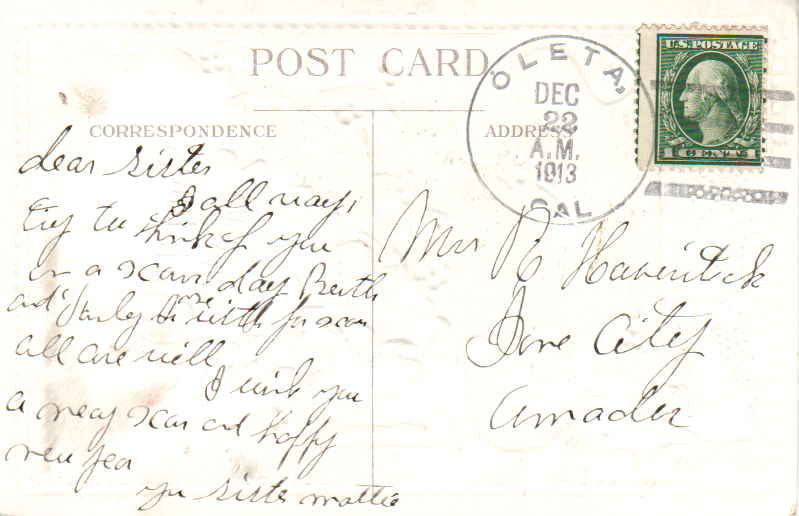 POST CARD
CORRESPONDENCE
ADDRESS
OLETA,
DEC
22
A.M.
1913
CAL
U.S. POSTAGE
dear sister
I all ways
try to think of you
on a xcms day
and are with for xcm
all are well
I wish you
a mery xcms and happy
new yea
you sister mattie
Mrs R
Ione City
Amador